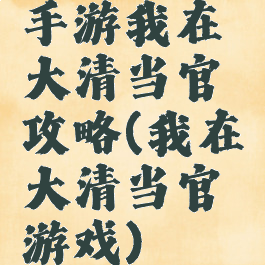 手游我在
大清当官
攻略(我在
大清当官
游戏)